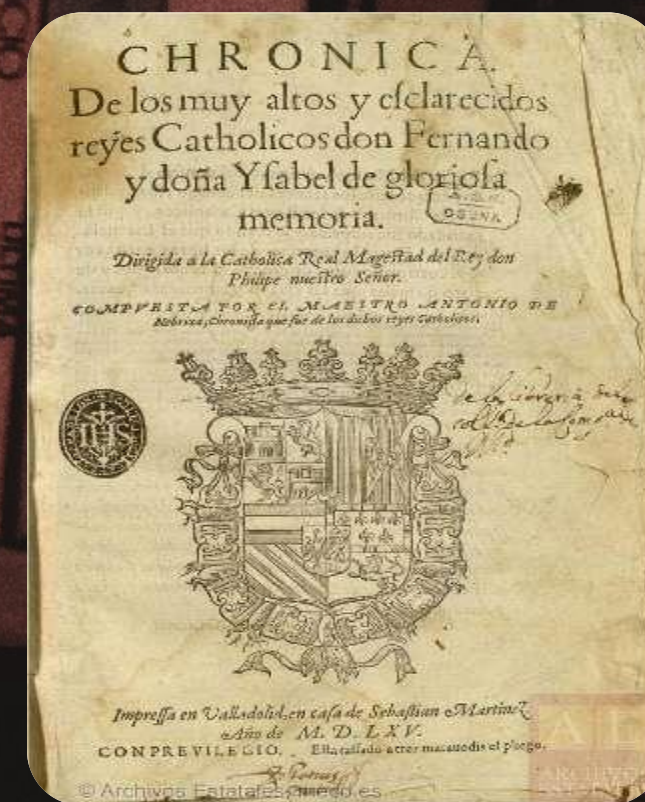 CHRONICA.
De los muy altos y esclarecidos
reyes Catholicos don Fernando
y doña Ysabel de gloriosa
memoria.
OSUNA
Dirigida a la Catholica Real Magestad del Rey don
Philipe nuestro Señor.
COMPVESTA POR EL MAESTRO ANTONIO DE
Nebrixa, Chronista que fue de los dichos reyes Catholicos.
IHS
de la
de la Comp
Impressa en Valladolid, en casa de Sebastian Martinez
Año de M. D. LXV.
CON PREVILEGIO. Esta tassado a tres marauedis el pliego.
© Archivos Estatales, mecd.es